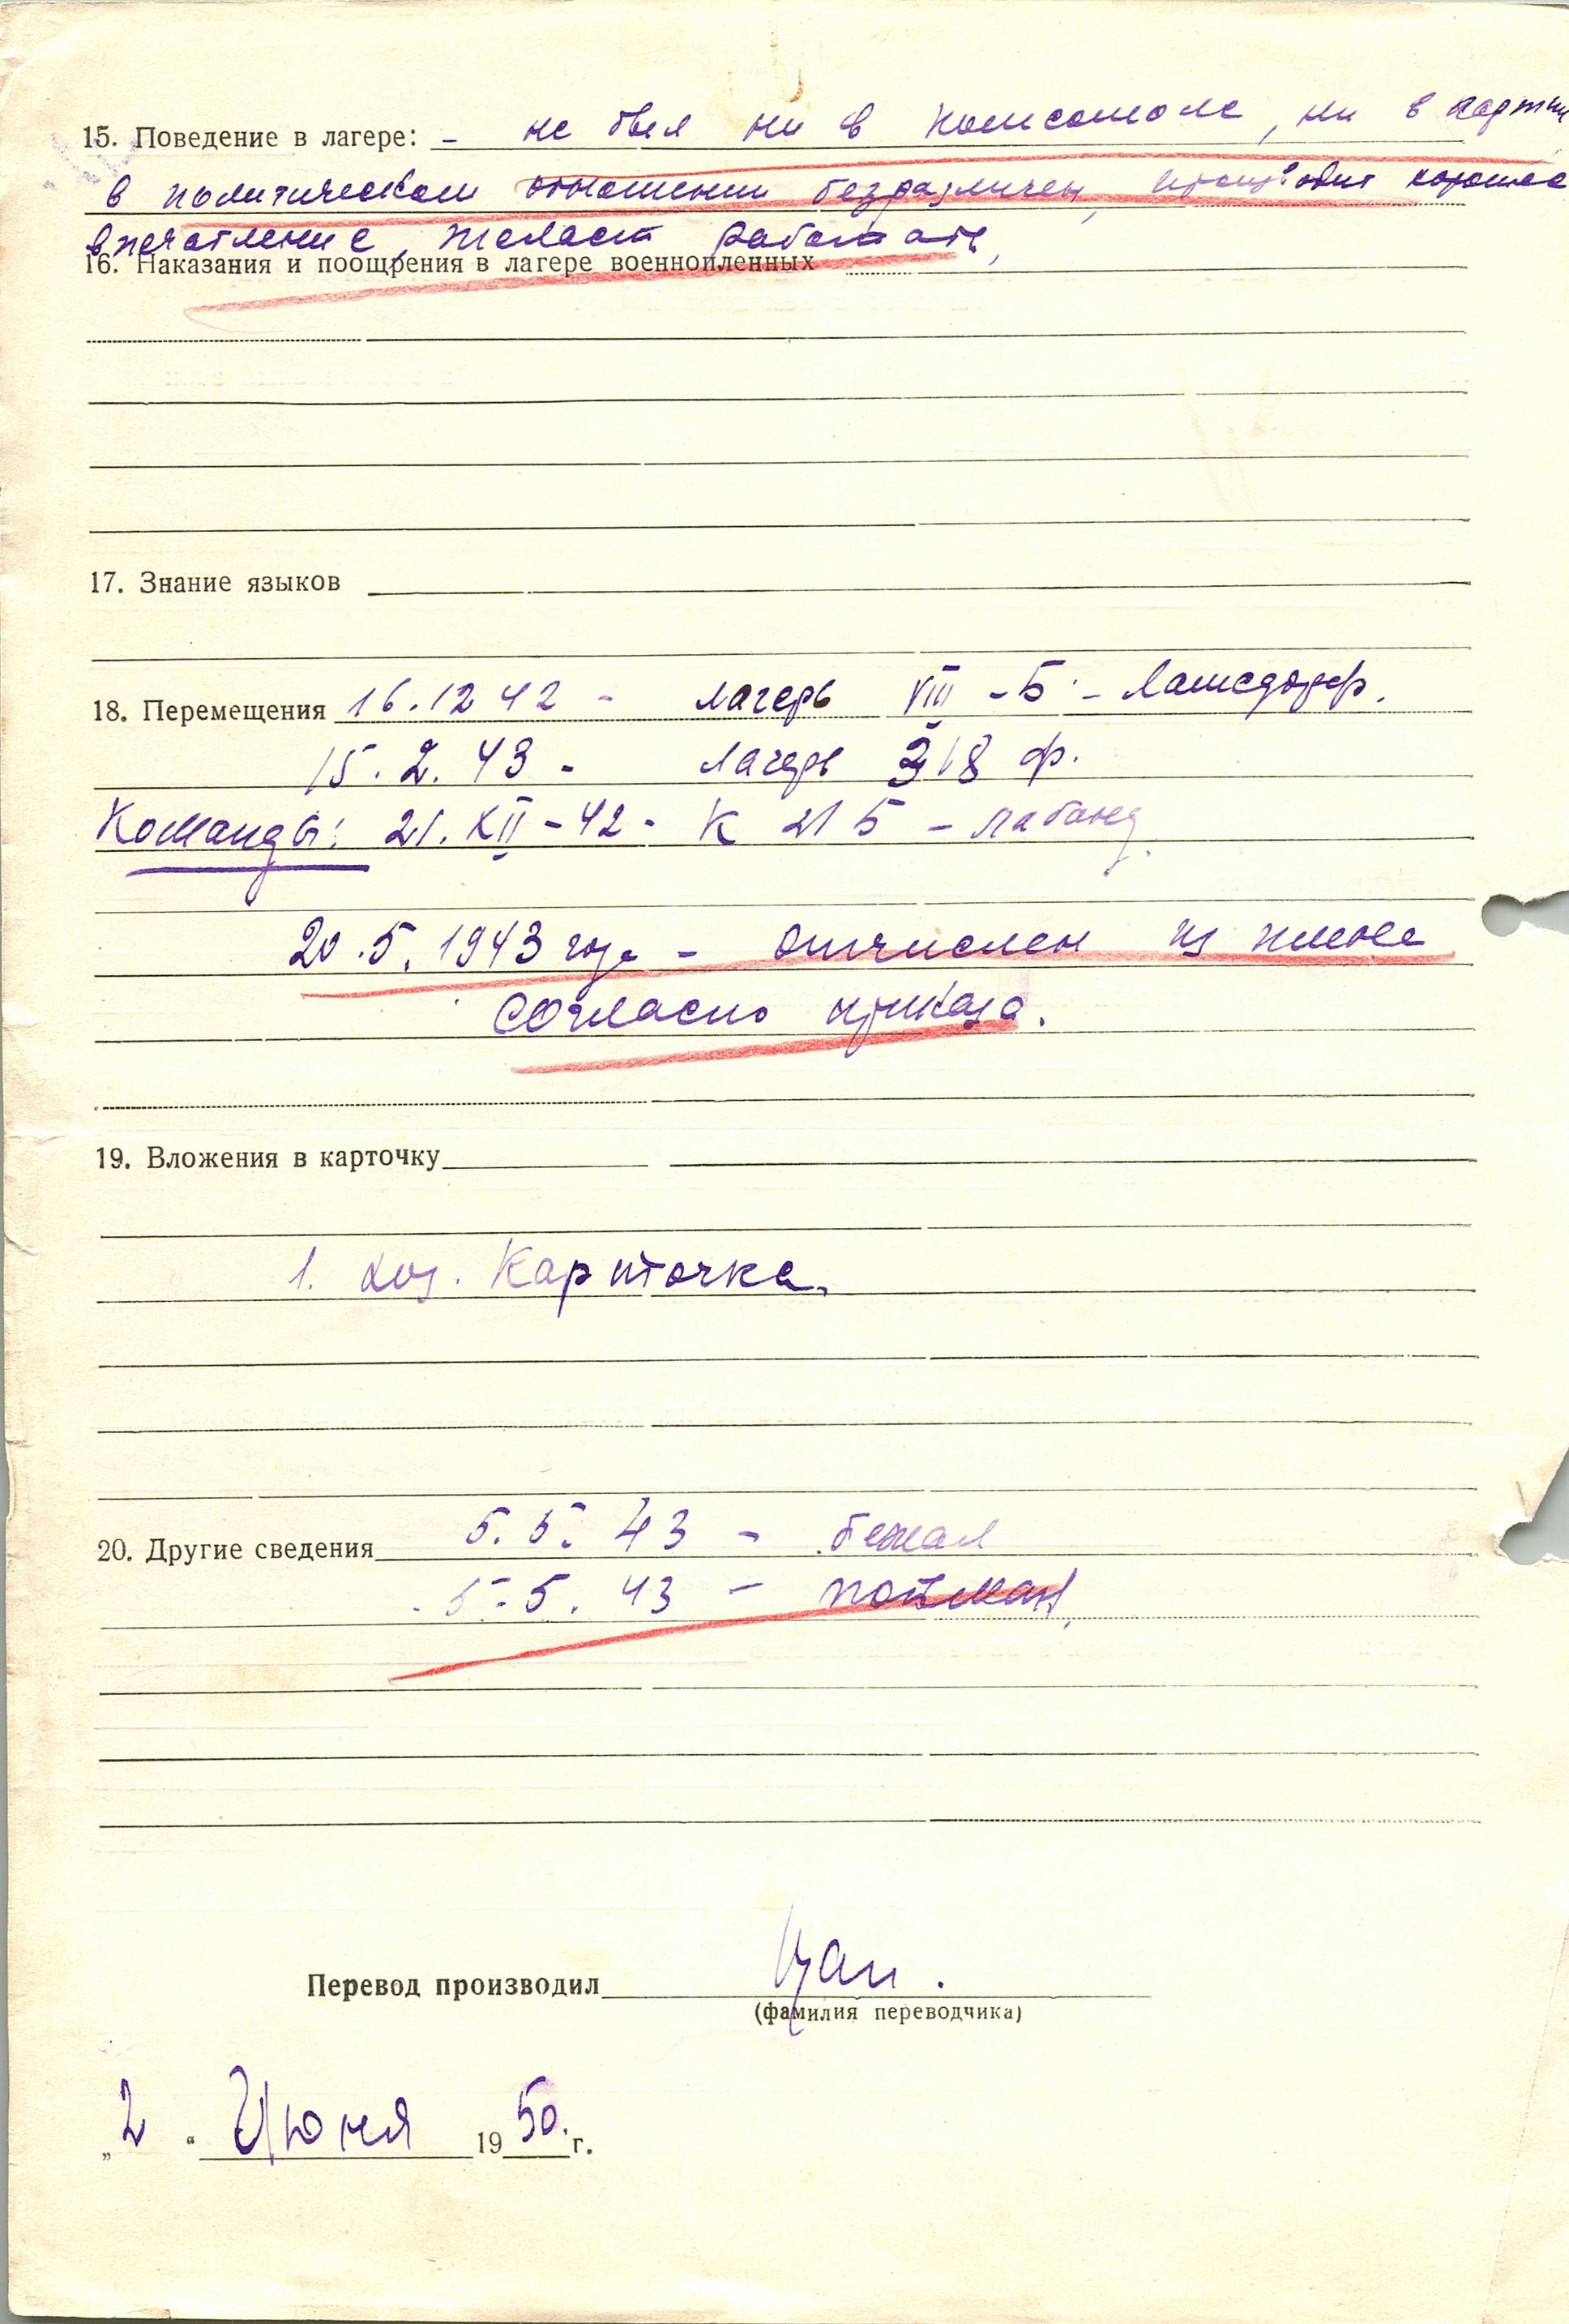 15. Поведение в лагере: - не был ни в комсомоле, ни в партии
в политическом отношении безразличен, производит хорошее
впечатление, желает работать,
16. Наказания и поощрения в лагере военнопленных
17. Знание языков
18. Перемещения 16.12 42 - лагерь VIII - Б - Ламсдорф.
15. 2. 43 - лагерь 318 ф.
Команды: 21. XII - 42 - К 21 Б - Лабанд.
20.5.1943 года - отчислен из плена
согласно приказа.
19. Вложения в карточку
1. карточка.
20. Другие сведения 5. 5. 43 - бежал
5. 5. 43 - пойман.
Перевод производил
(фамилия переводчика)
„2“ Июня 1950. г.